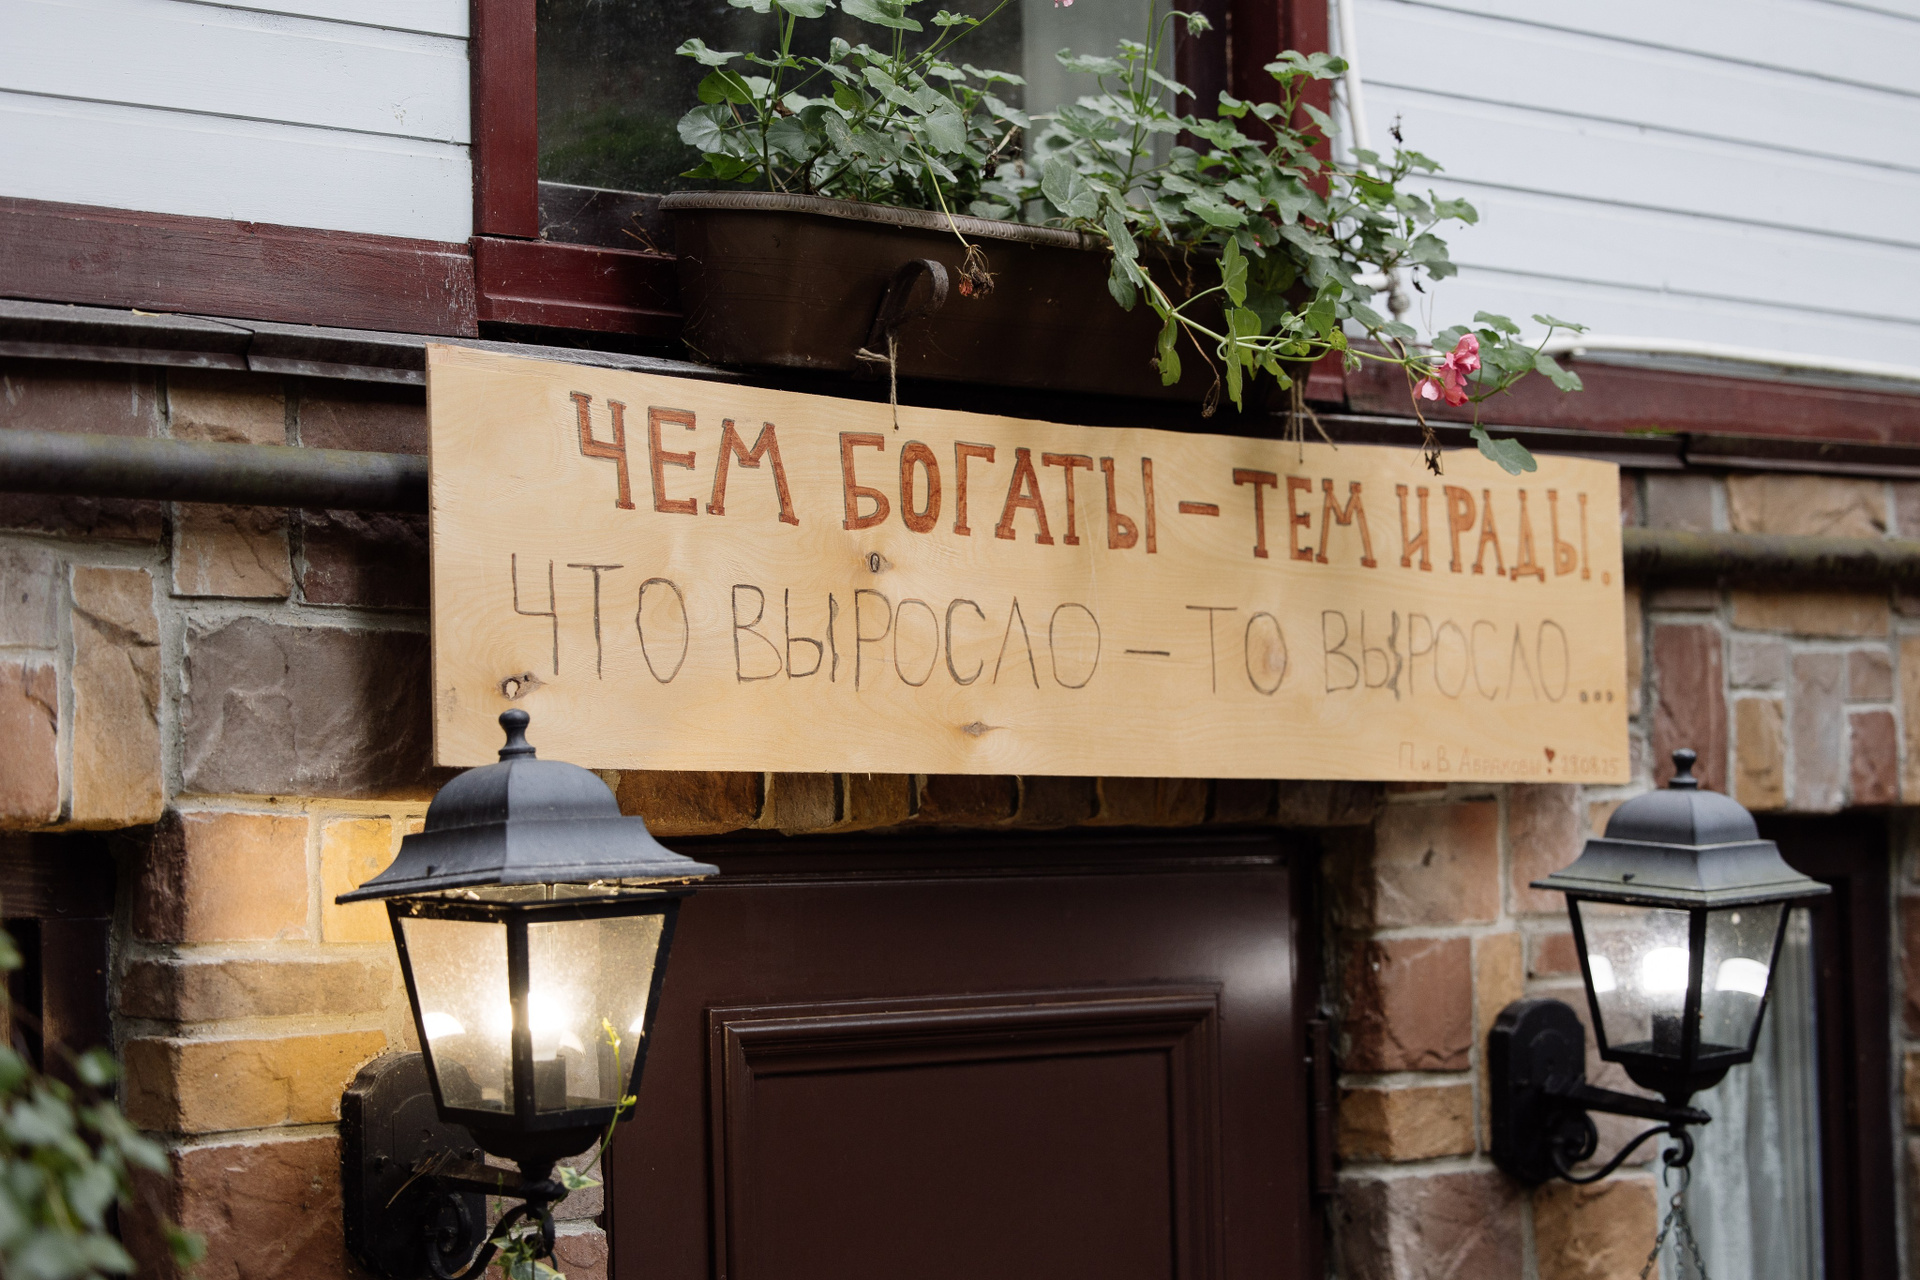 ЧЕМ БОГАТЫ – ТЕМ И РАДЫ.
ЧТО ВЫРОСЛО – ТО ВЫРОСЛО...
П. и В. Аврамовы